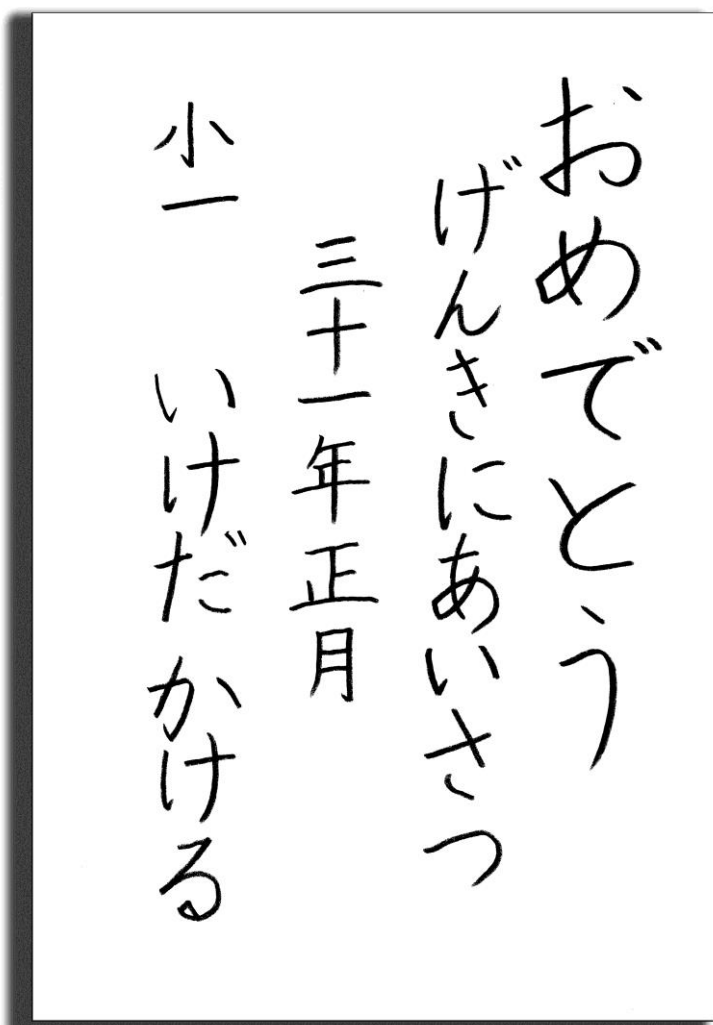 おめでとう
げんきにあいさつ
三十一年正月
小一 いけだ かける